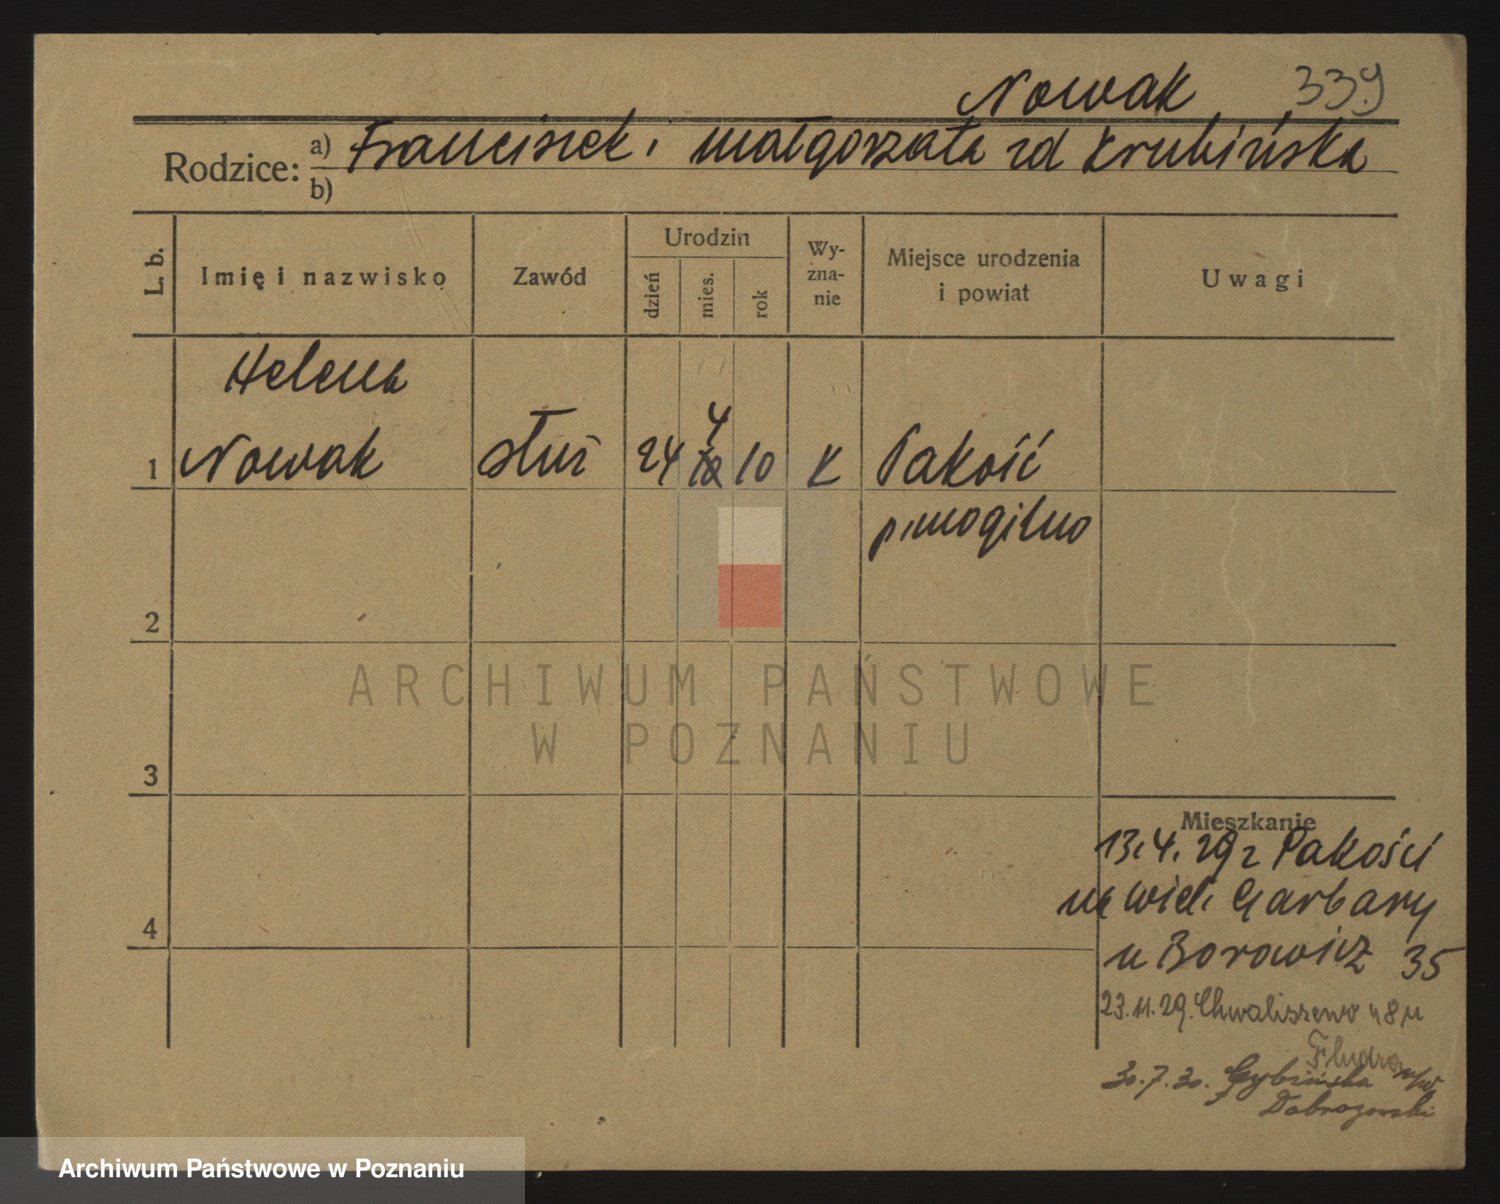 Nowak 339
Rodzice: a) Franciszek i Małgorzata zd Krubińska
b)
L. b. Imię i nazwisko Zawód Urodzin dzień mies. rok Wy-zna-nie Miejsce urodzenia i powiat Uwagi
Helena
4
1 Nowak służ 24 10 K Pakość
p. mogilno
2
ARCHIWUM PAŃSTWOWE
W POZNANIU
3
Mieszkanie
13.4.29 z Pakości
na wiel. Garbary
4
u Borowicz 35
23.11.29. Chwaliszewo u
Fludra
30.7.30.
Dobrogowski
Archiwum Państwowe w Poznaniu